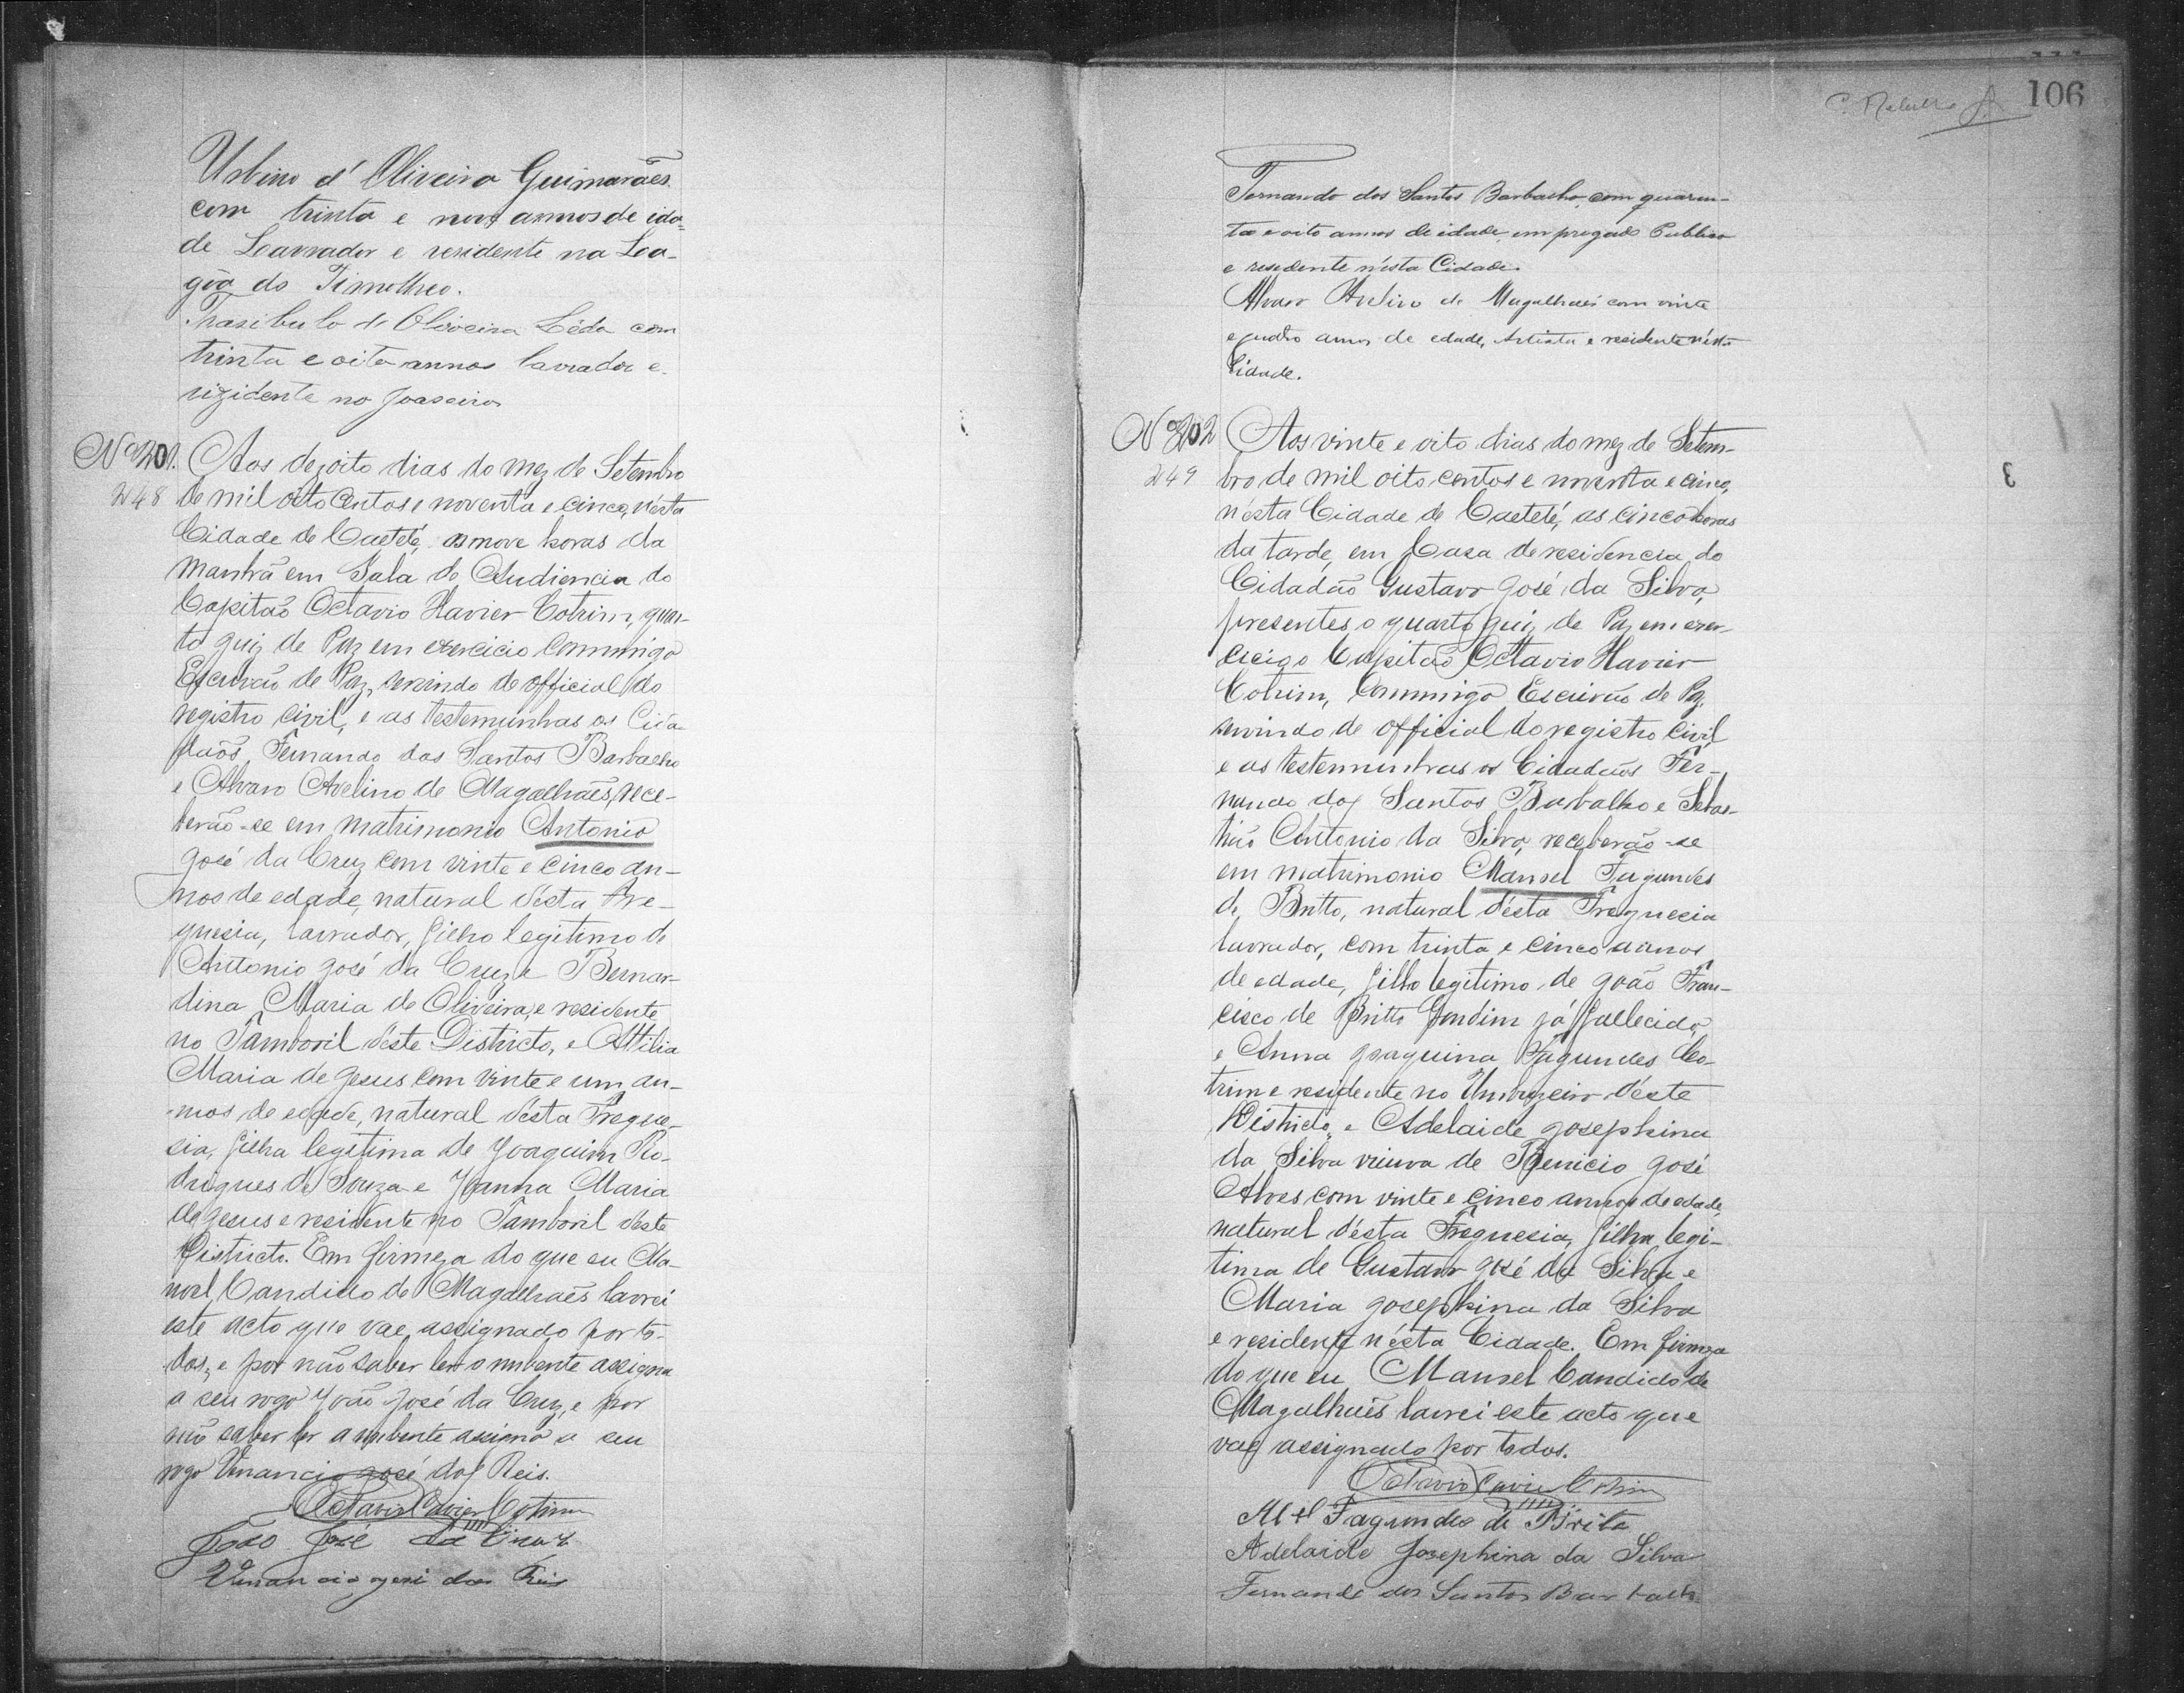 Urbino d'Oliveira Guimarães
com trinta e nove annos de ida-
de Lavrador e residente na Loa-
gôa do Timotheo.
Trasibulo de Oliveira Lêda com
trinta e oito annos lavrador e
rizidente no Joaseiro
Nº 201. Aos dezoito dias do mez de Setembro
248 de mil oito centos e noventa e cinco, n'ésta
Cidade de Caeteté, as nove horas da
manhã em Sala de Audiencia do
Capitão Octavio Xavier Cotrim, quar-
to juiz de Paz em exercicio commigo
Escrivão de Paz, servindo de official do
registro civil, e as testemunhas os Cida-
dãos Fernando dos Santos Barbalho
e Alvaro Avelino de Magalhães, rece-
berão-se em matrimonio Antonio
José da Cruz com vinte e cinco an-
nos de edade, natural d'ésta Fre-
guesia, lavrador, filho legitimo de
Antonio José da Cruz e Bernar-
dina Maria de Oliveira, e residente
no Tamboril d'éste Districto, e Attilia
Maria de Jesus com vinte e um an-
nos de edade, natural d'ésta Fregue-
sia, filha legitima de Joaquim Ro-
drigues de Souza e Joanna Maria
de Jesus e residente no Tamboril d'éste
Districto. Em firmeza do que eu Ma-
noel Candido de Magalhães lavrei
este acto que vae assignado por to-
dos, e por não saber ler o nubente assigna
a seu rogo João José da Cruz, e por
não saber ler a nubente assigna a seu
rogo Venancio José dos Reis.
Octavio Xavier Cotrim
João José da Cruz
Venancio José dos Reis
106
Fernando dos Santos Barbalho, com quaren-
ta e oito annos de idade, empregado Publico
e residente n'ésta Cidade.
Alvaro Avelino de Magalhães com vinte
e quatro annos de edade, Artista e residente n'ésta
Cidade.
Nº 202 Aos vinte e oito dias do mez de Setem-
249 bro de mil oito centos e noventa e cinco,
n'ésta Cidade de Caeteté, as cinco horas
da tarde, em Casa de residencia do
Cidadão Gustavo José da Silva,
presentes o quarto juiz de Paz em exer-
cicio Capitão Octavio Xavier
Cotrim, commigo Escrivão de Paz,
servindo de official do registro civil
e as testemunhas os Cidadãos Fer-
nando dos Santos Barbalho e Sebas-
tião Antonio da Silva, receberão-se
em matrimonio Manoel Fagundes
de Britto, natural d'ésta Freguesia
lavrador, com trinta e cinco annos
de edade, filho legitimo de João Fran-
cisco de Britto Gondim já fallecido,
e Anna Joaquina Fagundes Co-
trim e residente no Umbuzeiro d'éste
Districto, e Adelaide Josephina
da Silva viuva de Benicio José
Alves com vinte e cinco annos de edade,
natural d'ésta Freguesia, filha legi-
tima de Gustavo José da Silva e
Maria Josephina da Silva
e residente n'ésta Cidade. Em firmeza
do que eu Manoel Candido de
Magalhães lavrei este acto que
vae assignado por todos.
Octavio Xavier Cotrim
Mel Fagundes de Brito
Adelaide Josephina da Silva
Fernando dos Santos Barbalho